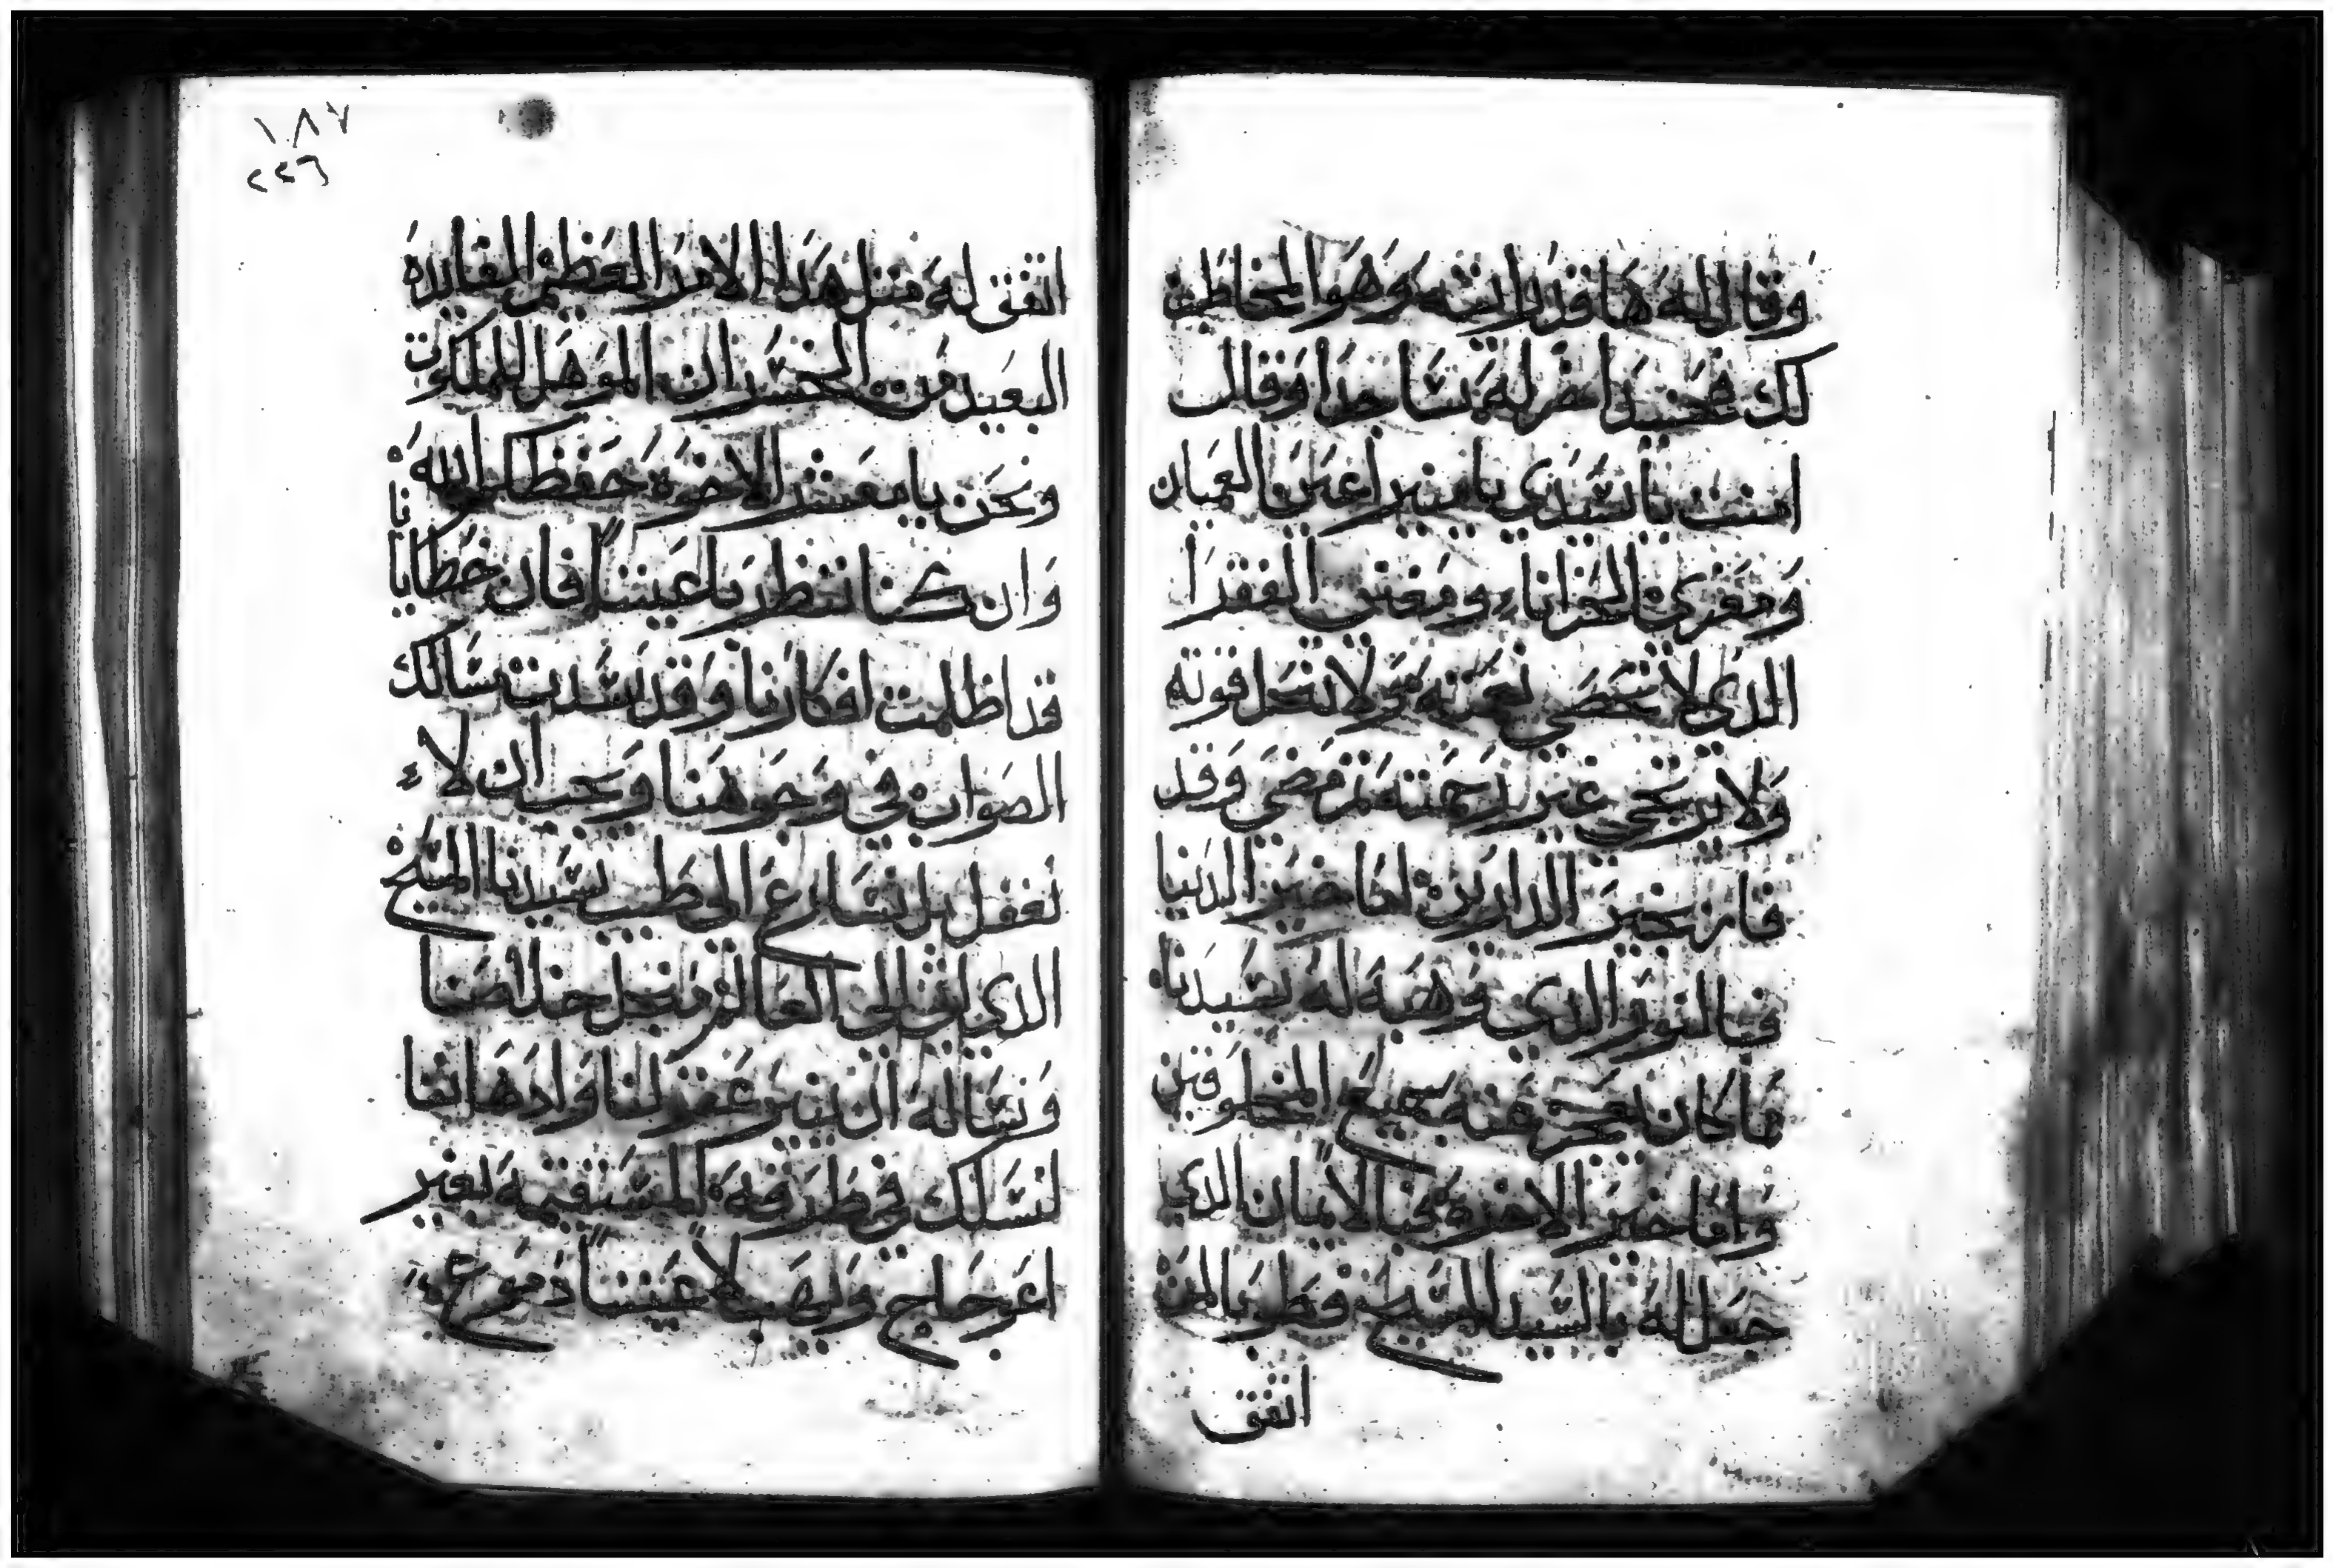 وقال له ها قد رايته وهو المخاطب
لك فحينيد خر له ساجدا وقال
امنت يا سيدي يا منير اعين العميان
ومعزي الحزانا ومغني الفقرا
الدي لا تحصى نعمته ولا تحل قوته
ولا يرتجى غير رحمته تم مضى وقد
فاز بخير الدارين اما خير الدنيا
فبالنور الدي وهبه له سيدنا
ما كان يعجز عنه جميع المخلوقين
واما خير الاخرة فبالايمان الدي
حصل له بالسيد المسيح فطوبا لمن
اتفق
١٨٧
٢٢٦
اتفق له متل هدا الامر العظيم الفايدة
البعيد من الخسران الموهل للملكوت
ونحن يا معشر الاخوة حفظكم الله
وان كنا ننظر باعيننا فان خطايانا
قد اظلمت افكارنا وقد سدت مسالك
الصواب في وجوهنا ويجب ان لا
نغفل بل نسارع الى طبيب سيدنا المسيح
الدي اتى الى العالم من اجل خلاصنا
ونساله ان ينير عقولنا وادهاننا
لنسلك في طرقه المستقيمة بغير
اعوجاج ويهب لاعيننا دموع